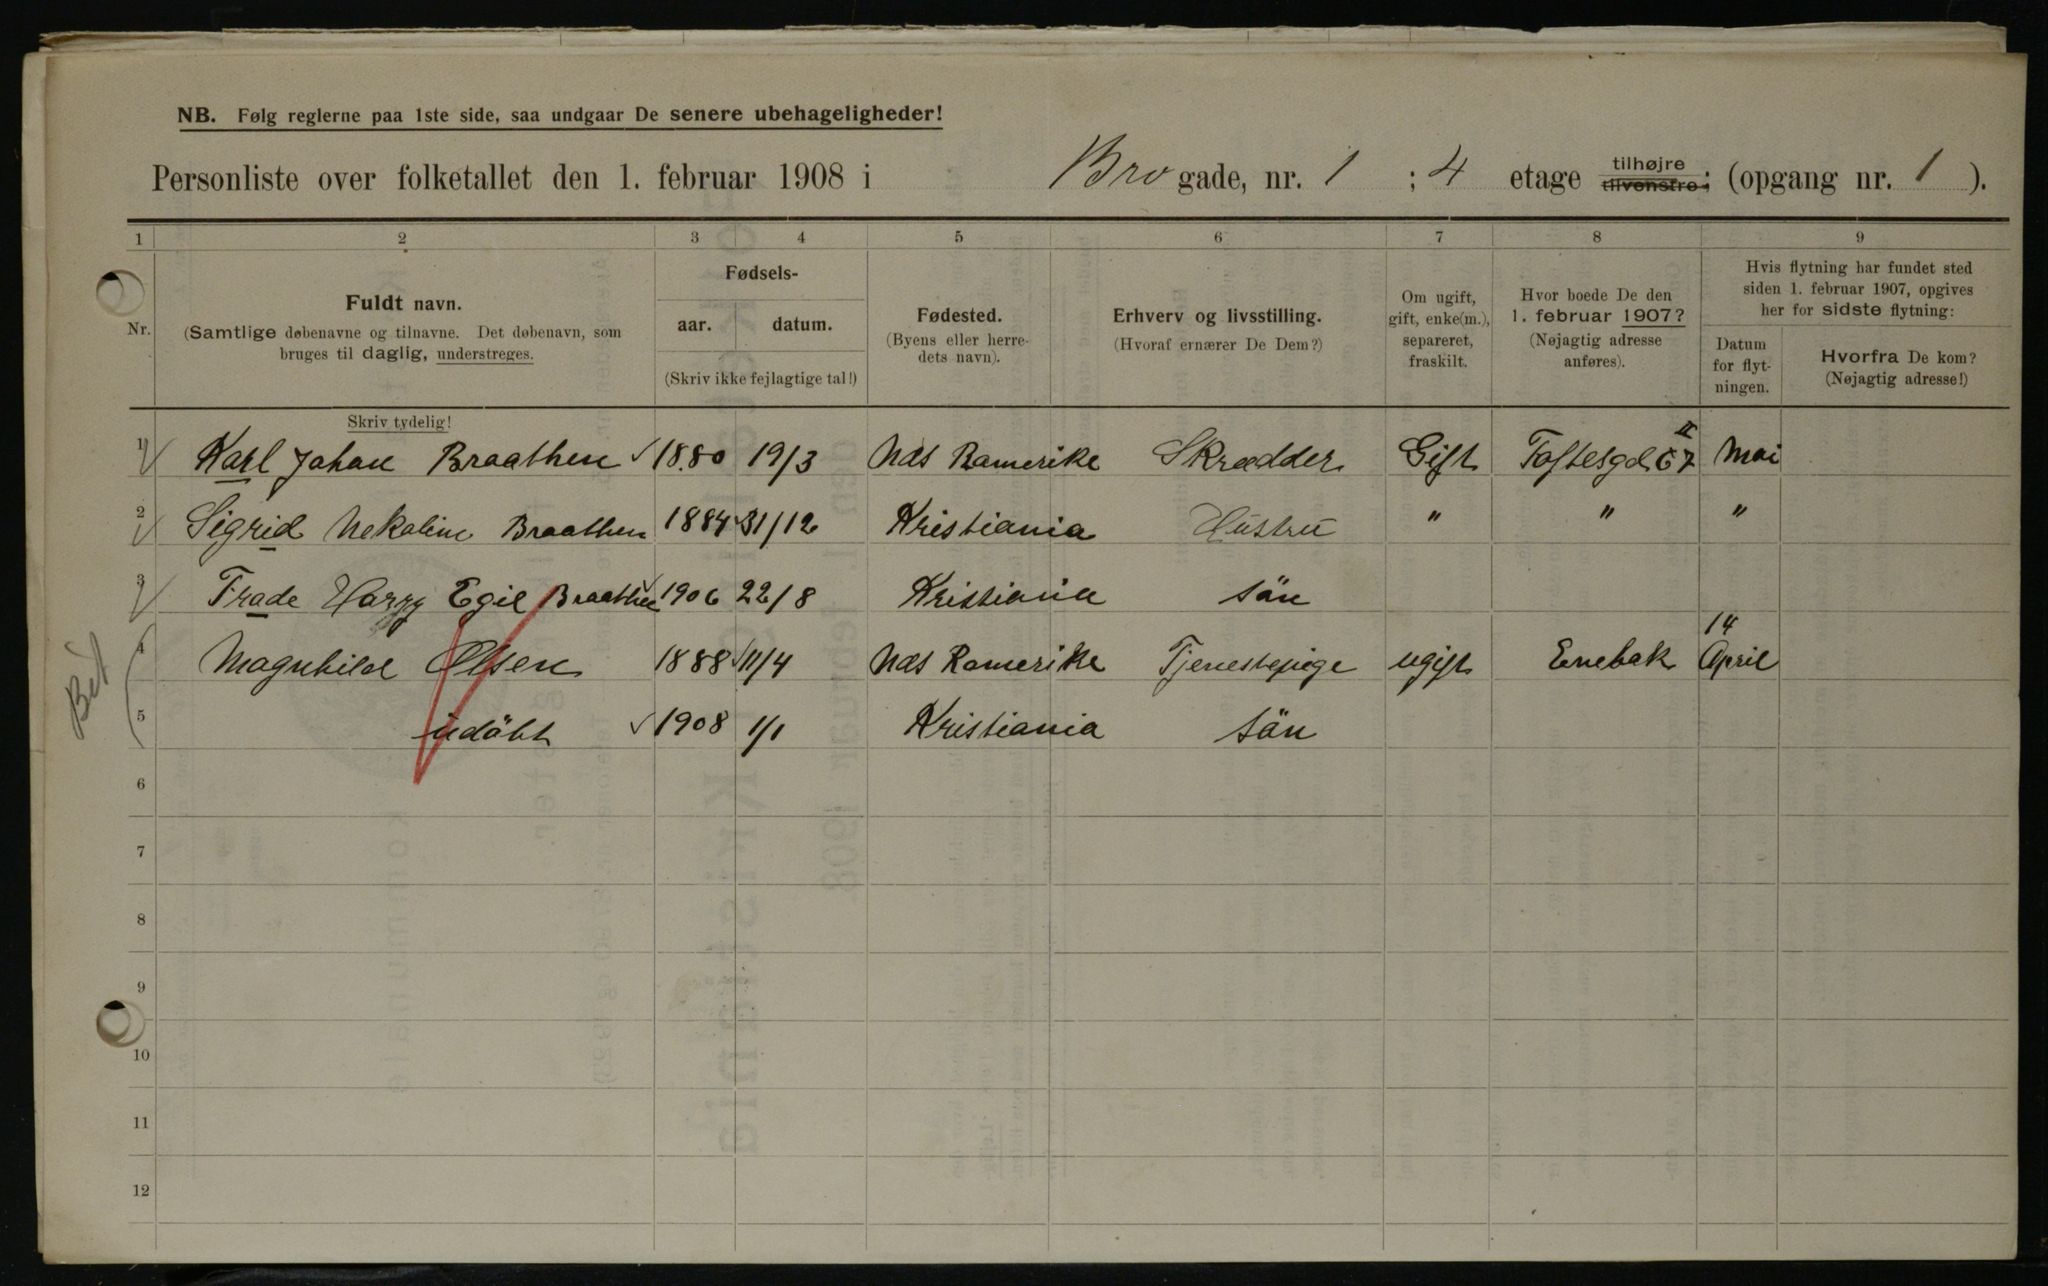 NB. Følg reglerne paa 1ste side, saa undgaar De senere ubehageligheder!
Personliste over folketallet den 1. februar 1908 i Bro gade, nr. 1 ; 4 etage tilhøjre tilvenstre; (opgang nr. 1 ).
1 2 3 4 5 6 7 8 9
Nr.
Fuldt navn.
(Samtlige døbenavne og tilnavne. Det døbenavn, som
bruges til daglig, understreges.
Skriv tydelig!
Fødsels-
aar. datum.
(Skriv ikke fejlagtige tal!)
Fødested.
(Byens eller herre-
dets navn).
Erhverv og livsstilling.
(Hvoraf ernærer De Dem?)
Om ugift,
gift, enke(m.),
separeret,
fraskilt.
Hvor boede De den
1. februar 1907?
(Nøjagtig adresse
anføres).
Hvis flytning har fundet sted
siden 1. februar 1907, opgives
her for sidste flytning:
Datum
for flyt-
ningen.
Hvorfra De kom?
(Nøjagtig adresse!)
1 Karl Johan Braathen 1880 19/3 Næs Romerike Skrædder Gift Toftesgd 67 II Mai
2 Sigrid Nekoline Braathen 1884 31/12 Kristiania Hustru " " "
3 Frade Harry Egil Braathen 1906 22/8 Kristiania sön
4 Magnhild Olsen 1888 11/4 Næs Romerike Tjenestepige ugift Enebak 14 April
5 udöbt 1908 1/1 Kristiania sön
6
7
8
9
10
11
12